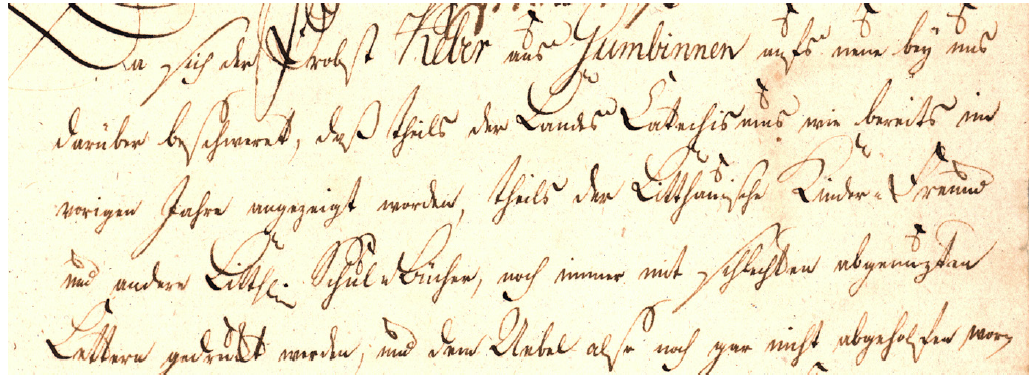 Da sich der Probst Keber aus Gumbinnen aufs neue bey uns
darüber beschweret, daß theils der Landes Cattechismus wie bereits im
vorigen Jahre angezeigt worden, theils der Litthauische Kinder-Freund
und andere Litth. Schul-Bücher, noch immer mit schlechten abgenuzten
Lettern gedruckt werden, und dem Uebel also noch gar nicht abgeholfen wor-